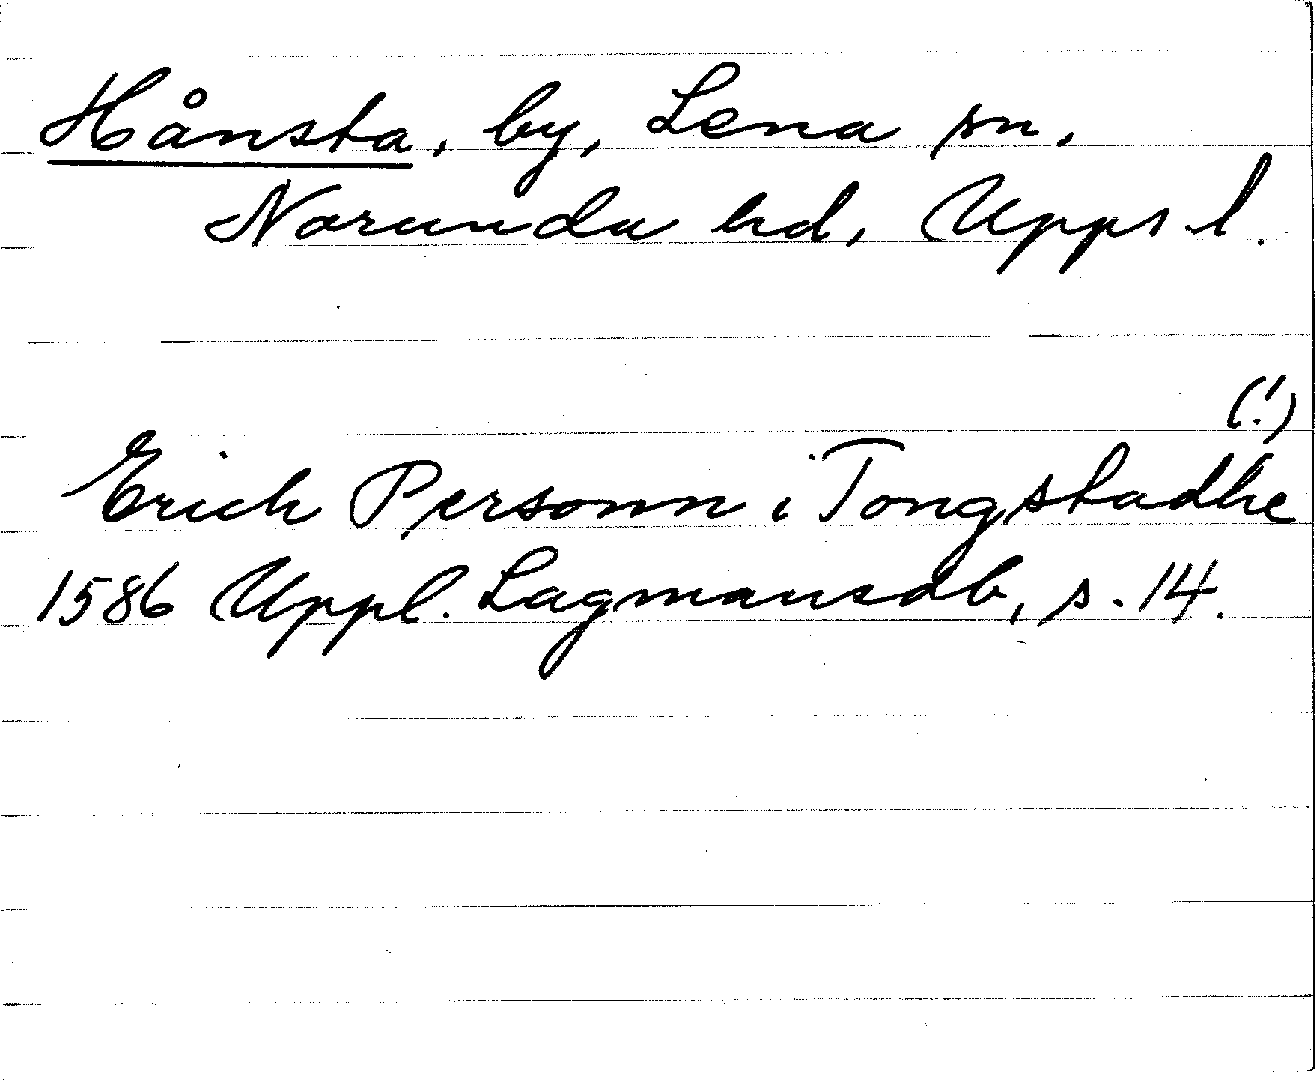 Hånsta, by, Lena sn,
Norunda hd, Upps l.
(!)
Erich Personn i Tongstadhe
1586 Uppl. Lagmansdb, s. 14.